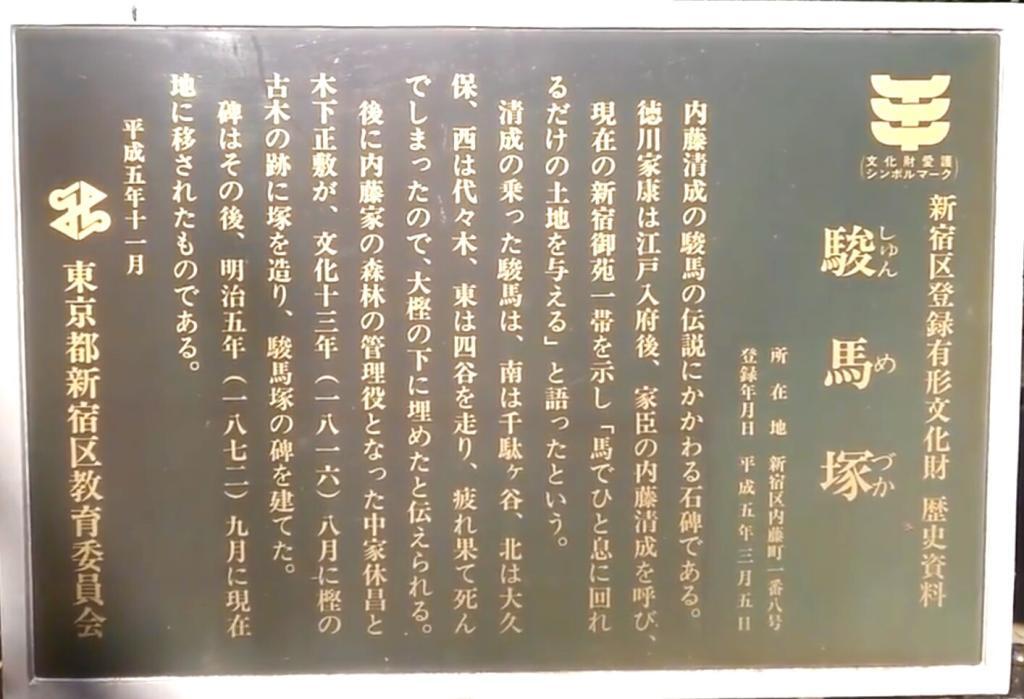 文化財愛護
シンボルマーク
新宿区登録有形文化財 歴史資料
駿馬塚
しゅんめづか
所在地 新宿区内藤町一番八号
登録年月日 平成五年三月五日
内藤清成の駿馬の伝説にかかわる石碑である。
徳川家康は江戸入府後、家臣の内藤清成を呼び、
現在の新宿御苑一帯を示し「馬でひと息に回れ
るだけの土地を与える」と語ったという。
清成の乗った駿馬は、南は千駄ヶ谷、北は大久
保、西は代々木、東は四谷を走り、疲れ果て死ん
でしまったので、大樫の下に埋めたと伝えられる。
後に内藤家の森林の管理役となった中家休昌と
木下正敷が、文化十三年(一八一六)八月に樫の
古木の跡に塚を造り、駿馬塚の碑を建てた。
碑はその後、明治五年(一八七二)九月に現在
地に移されたものである。
平成五年十一月
東京都新宿区教育委員会